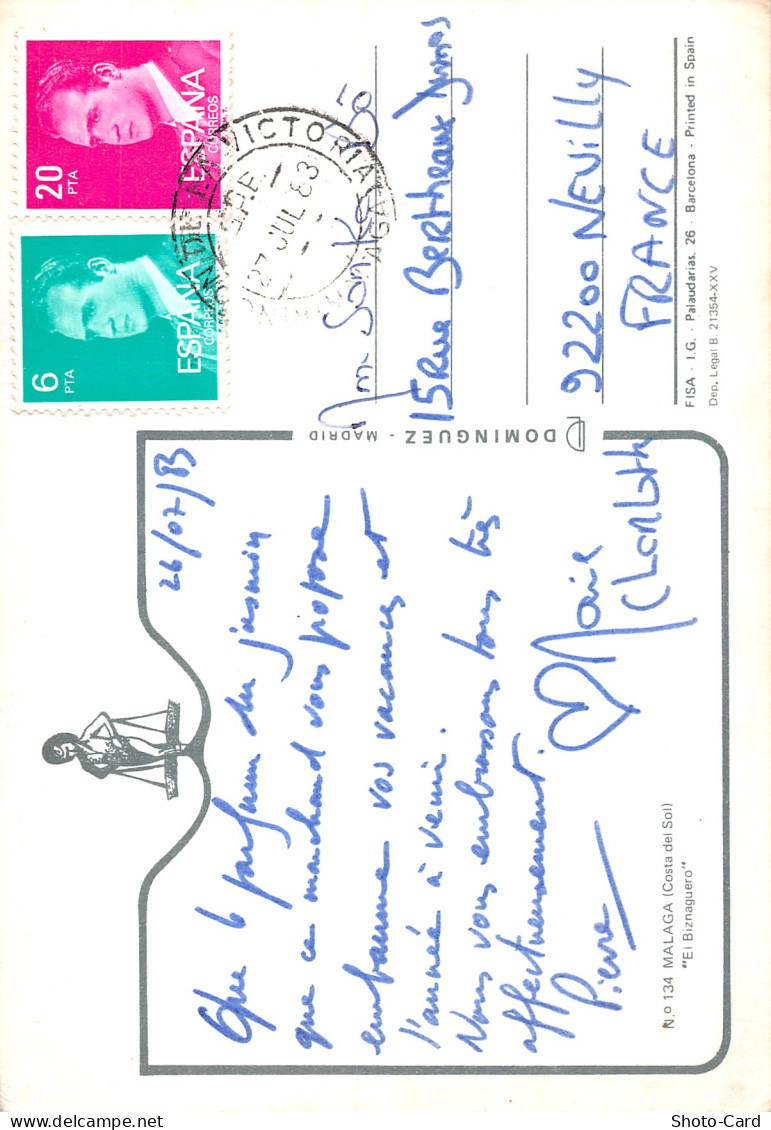 26/07/83
Que le parfum du jasmin
que ce marchand vous propose
embaume vos vacances et
l'année à venir.
Nous vous embrassons tous très
affectueusement.
Pierre
Marie
Charlotte
N.º 134 MALAGA (Costa del Sol)
"El Biznaguero"
DOMINGUEZ - MADRID
20
PTA
ESPAÑA
CORREOS
6
PTA
ESPAÑA
CORREOS
VICTORIA
27 JUL 83
15 Rue Bertheaux Dumas
92200 NEUILLY
FRANCE
FISA - I.G. - Palaudarias, 26 - Barcelona - Printed in Spain
Dep. Legal B. 21354-XXV
Shoto-Card